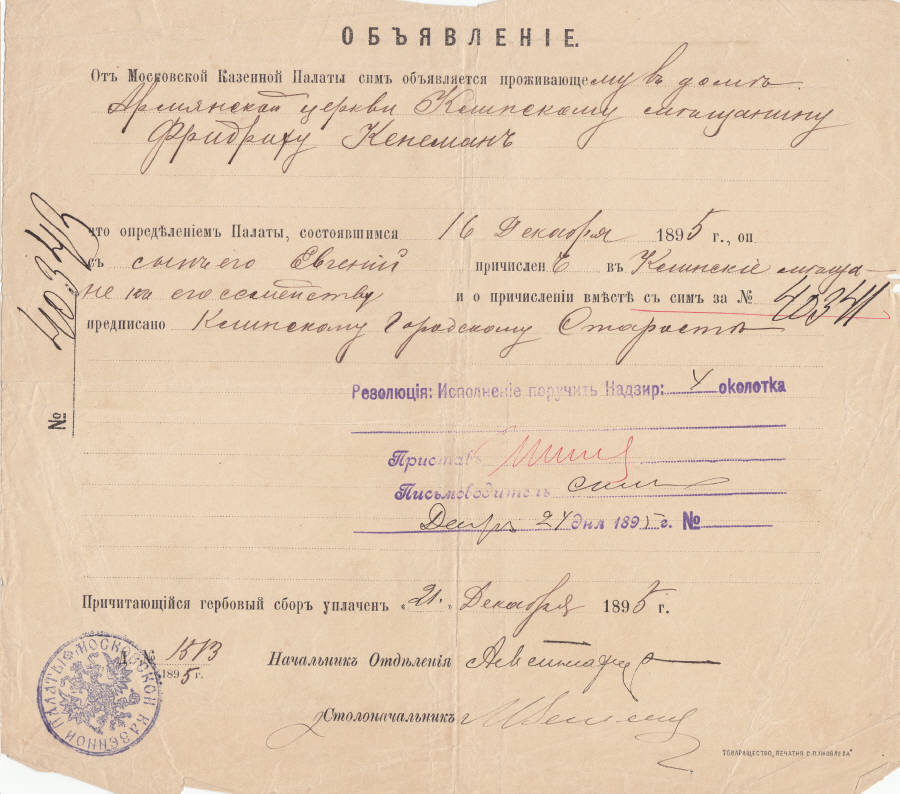 ОБЪЯВЛЕНІЕ.
Отъ Московской Казенной Палаты симъ объявляется проживающему въ домѣ
Армянской церкви Клинскому мѣщанину
Фридриху Кенеманъ
что опредѣленіемъ Палаты, состоявшимся 16 Декабря 1895 г., он
съ сыномъ его Евгеній причисленъ въ Клинскіе мѣща-
не къ его семейству и о причисленіи вмѣстѣ съ симъ за № 40341
предписано Клинскому Городскому Старостѣ
№ 40343
Резолюція: Исполненіе поручить Надзир: 4 околотка
Приставъ
Письмоводитель
Декр 24 дня 1895 г. №
Причитающійся гербовый сборъ уплаченъ „21„ Декабря 1895 г.
Д. № 1513
1895 г.
Начальникъ Отдѣленія
Столоначальникъ
МОСКОВСКОЙ КАЗЕННОЙ ПАЛАТЫ
ТОВАРИЩЕСТВО „ПЕЧАТНЯ С.П.ЯКОВЛЕВА"